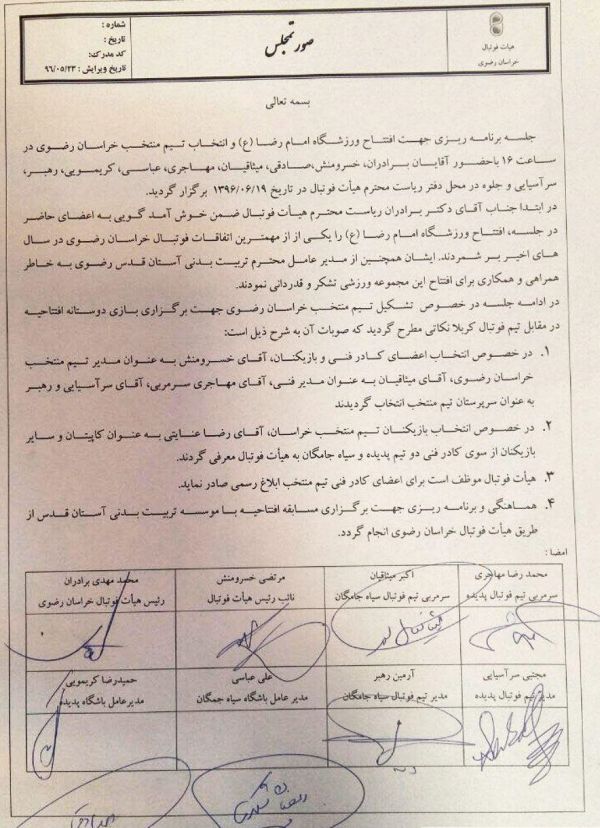 شماره :
تاریخ :
کد مدرک:
تاریخ ویرایش : ۹۶/۰۵/۲۳
صورتمجلس
هیأت فوتبال
خراسان رضوی
بسمه تعالی
جلسه برنامه ریزی جهت افتتاح ورزشگاه امام رضا (ع) و انتخاب تیم منتخب خراسان رضوی در
ساعت ۱۶ باحضور آقایان برادران، خسرومنش،صادقی، میثاقیان، مهاجری، عباسی، کریمویی، رهبر،
سرآسیایی و جلوه در محل دفتر ریاست محترم هیأت فوتبال در تاریخ ۱۳۹۶/۰۶/۱۹ برگزار گردید.
در ابتدا جناب آقای دکتر برادران ریاست محترم هیأت فوتبال ضمن خوش آمد گویی به اعضای حاضر
در جلسه، افتتاح ورزشگاه امام رضا (ع) را یکی از از مهمترین اتفاقات فوتبال خراسان رضوی در سال
های اخیر بر شمردند. ایشان همچنین از مدیر عامل محترم تربیت بدنی آستان قدس رضوی به خاطر
همراهی و همکاری برای افتتاح این مجموعه ورزشی تشکر و قدردانی نمودند.
در ادامه جلسه در خصوص تشکیل تیم منتخب خراسان رضوی جهت برگزاری بازی دوستانه افتتاحیه
در مقابل تیم فوتبال کربلا نکاتی مطرح گردید که صوبات آن به شرح ذیل است:
۱. در خصوص انتخاب اعضای کادر فنی و بازیکنان، آقای خسرومنش به عنوان مدیر تیم منتخب
خراسان رضوی، آقای میثاقیان به عنوان مدیر فنی، آقای مهاجری سرمربی، آقای سرآسیایی و رهبر
به عنوان سرپرستان تیم منتخب انتخاب گردیدند
۲. در خصوص انتخاب بازیکنان تیم منتخب خراسان، آقای رضا عنایتی به عنوان کاپیتان و سایر
بازیکنان از سوی کادر فنی دو تیم پدیده و سیاه جامگان به هیأت فوتبال معرفی گردند.
۳. هیأت فوتبال موظف است برای اعضای کادر فنی تیم منتخب ابلاغ رسمی صادر نماید.
۴. هماهنگی و برنامه ریزی جهت برگزاری مسابقه افتتاحیه با موسسه تربیت بدنی آستان قدس از
طریق هیأت فوتبال خراسان رضوی انجام گردد.
امضا :
محمد رضا مهاجری
سرمربی تیم فوتبال پدیده
اکبر میثاقیان
سرمربی تیم فوتبال سیاه جامگان
مرتضی خسرومنش
نائب رئیس هیأت فوتبال
محمد مهدی برادران
رئیس هیأت فوتبال خراسان رضوی
مجتبی سرآسیایی
مدیر تیم فوتبال پدیده
آرمین رهبر
مدیر تیم فوتبال سیاه جامگان
علی عباسی
مدیر عامل باشگاه سیاه جمگان
حمیدرضا کریمویی
مدیرعامل باشگاه پدیده